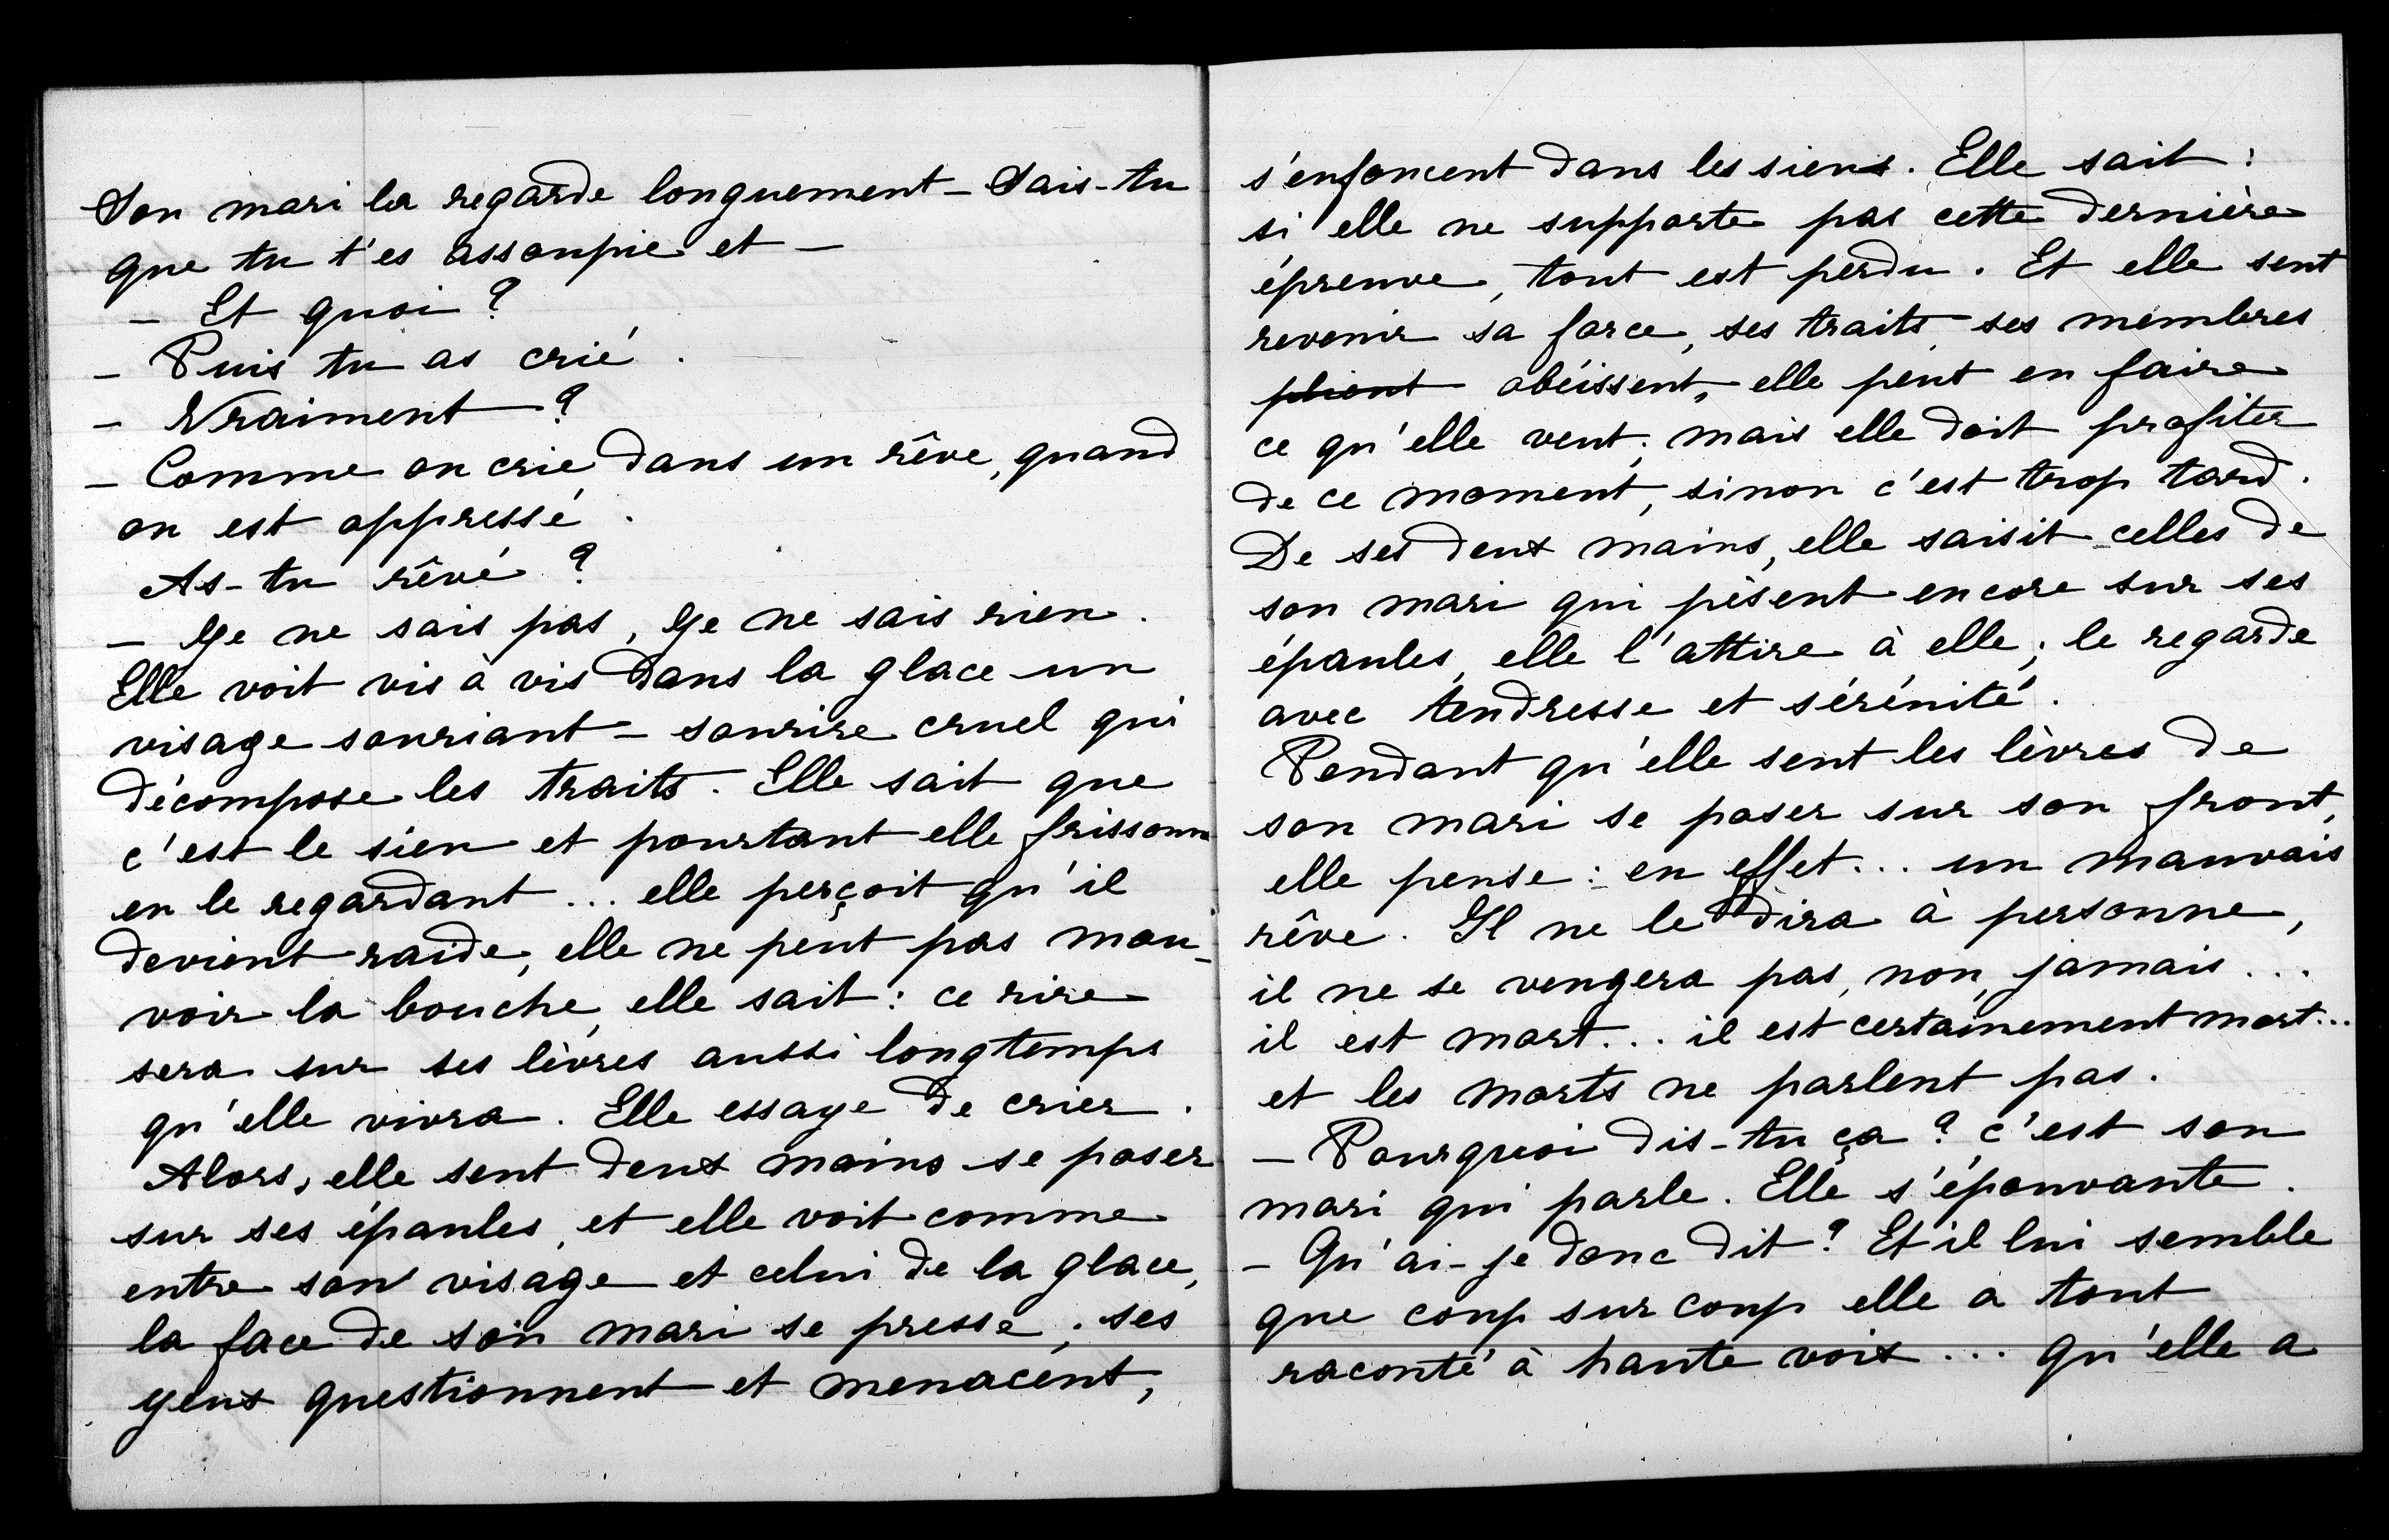 Son mari la regarde longuement - Sais-tu
que tu t'es assoupie et -
- Et quoi ?
- Puis tu as crié.
- Vraiment ?
- Comme on crie dans un rêve, quand
on est oppressé.
As-tu rêvé ?
- Je ne sais pas, je ne sais rien.
Elle voit vis à vis dans la glace un
visage souriant - sourire cruel qui
décompose les traits. Elle sait que
c'est le sien et pourtant elle frissonne
en le regardant ... elle perçoit qu'il
devient raide, elle ne peut pas mou-
voir la bouche, elle sait : ce rire
sera sur ses lèvres aussi longtemps
qu'elle vivra. Elle essaye de crier.
Alors, elle sent deux mains se poser
sur ses épaules, et elle voit comme
entre son visage et celui de la glace,
la face de son mari se presse ; ses
yeux questionnent et menacent,
s'enfoncent dans les siens. Elle sait :
si elle ne supporte pas cette dernière
épreuve, tout est perdu. Et elle sent
revenir sa force, ses traits, ses membres
plient obéissent, elle peut en faire
ce qu'elle veut ; mais elle doit profiter
de ce moment, sinon c'est trop tard.
De ses deux mains, elle saisit celles de
son mari qui pèsent encore sur ses
épaules, elle l'attire à elle ; le regarde
avec tendresse et sérénité.
Pendant qu'elle sent les lèvres de
son mari se poser sur son front,
elle pense : en effet ... un mauvais
rêve. Il ne le dira à personne,
il ne se vengera pas, non, jamais ...
il est mort ... il est certainement mort ...
et les morts ne parlent pas.
- Pourquoi dis-tu ça ? c'est son
mari qui parle. Elle s'épouvante.
- Qu'ai-je donc dit ? Et il lui semble
que coup sur coup elle a tout
raconté à haute voix ... qu'elle a